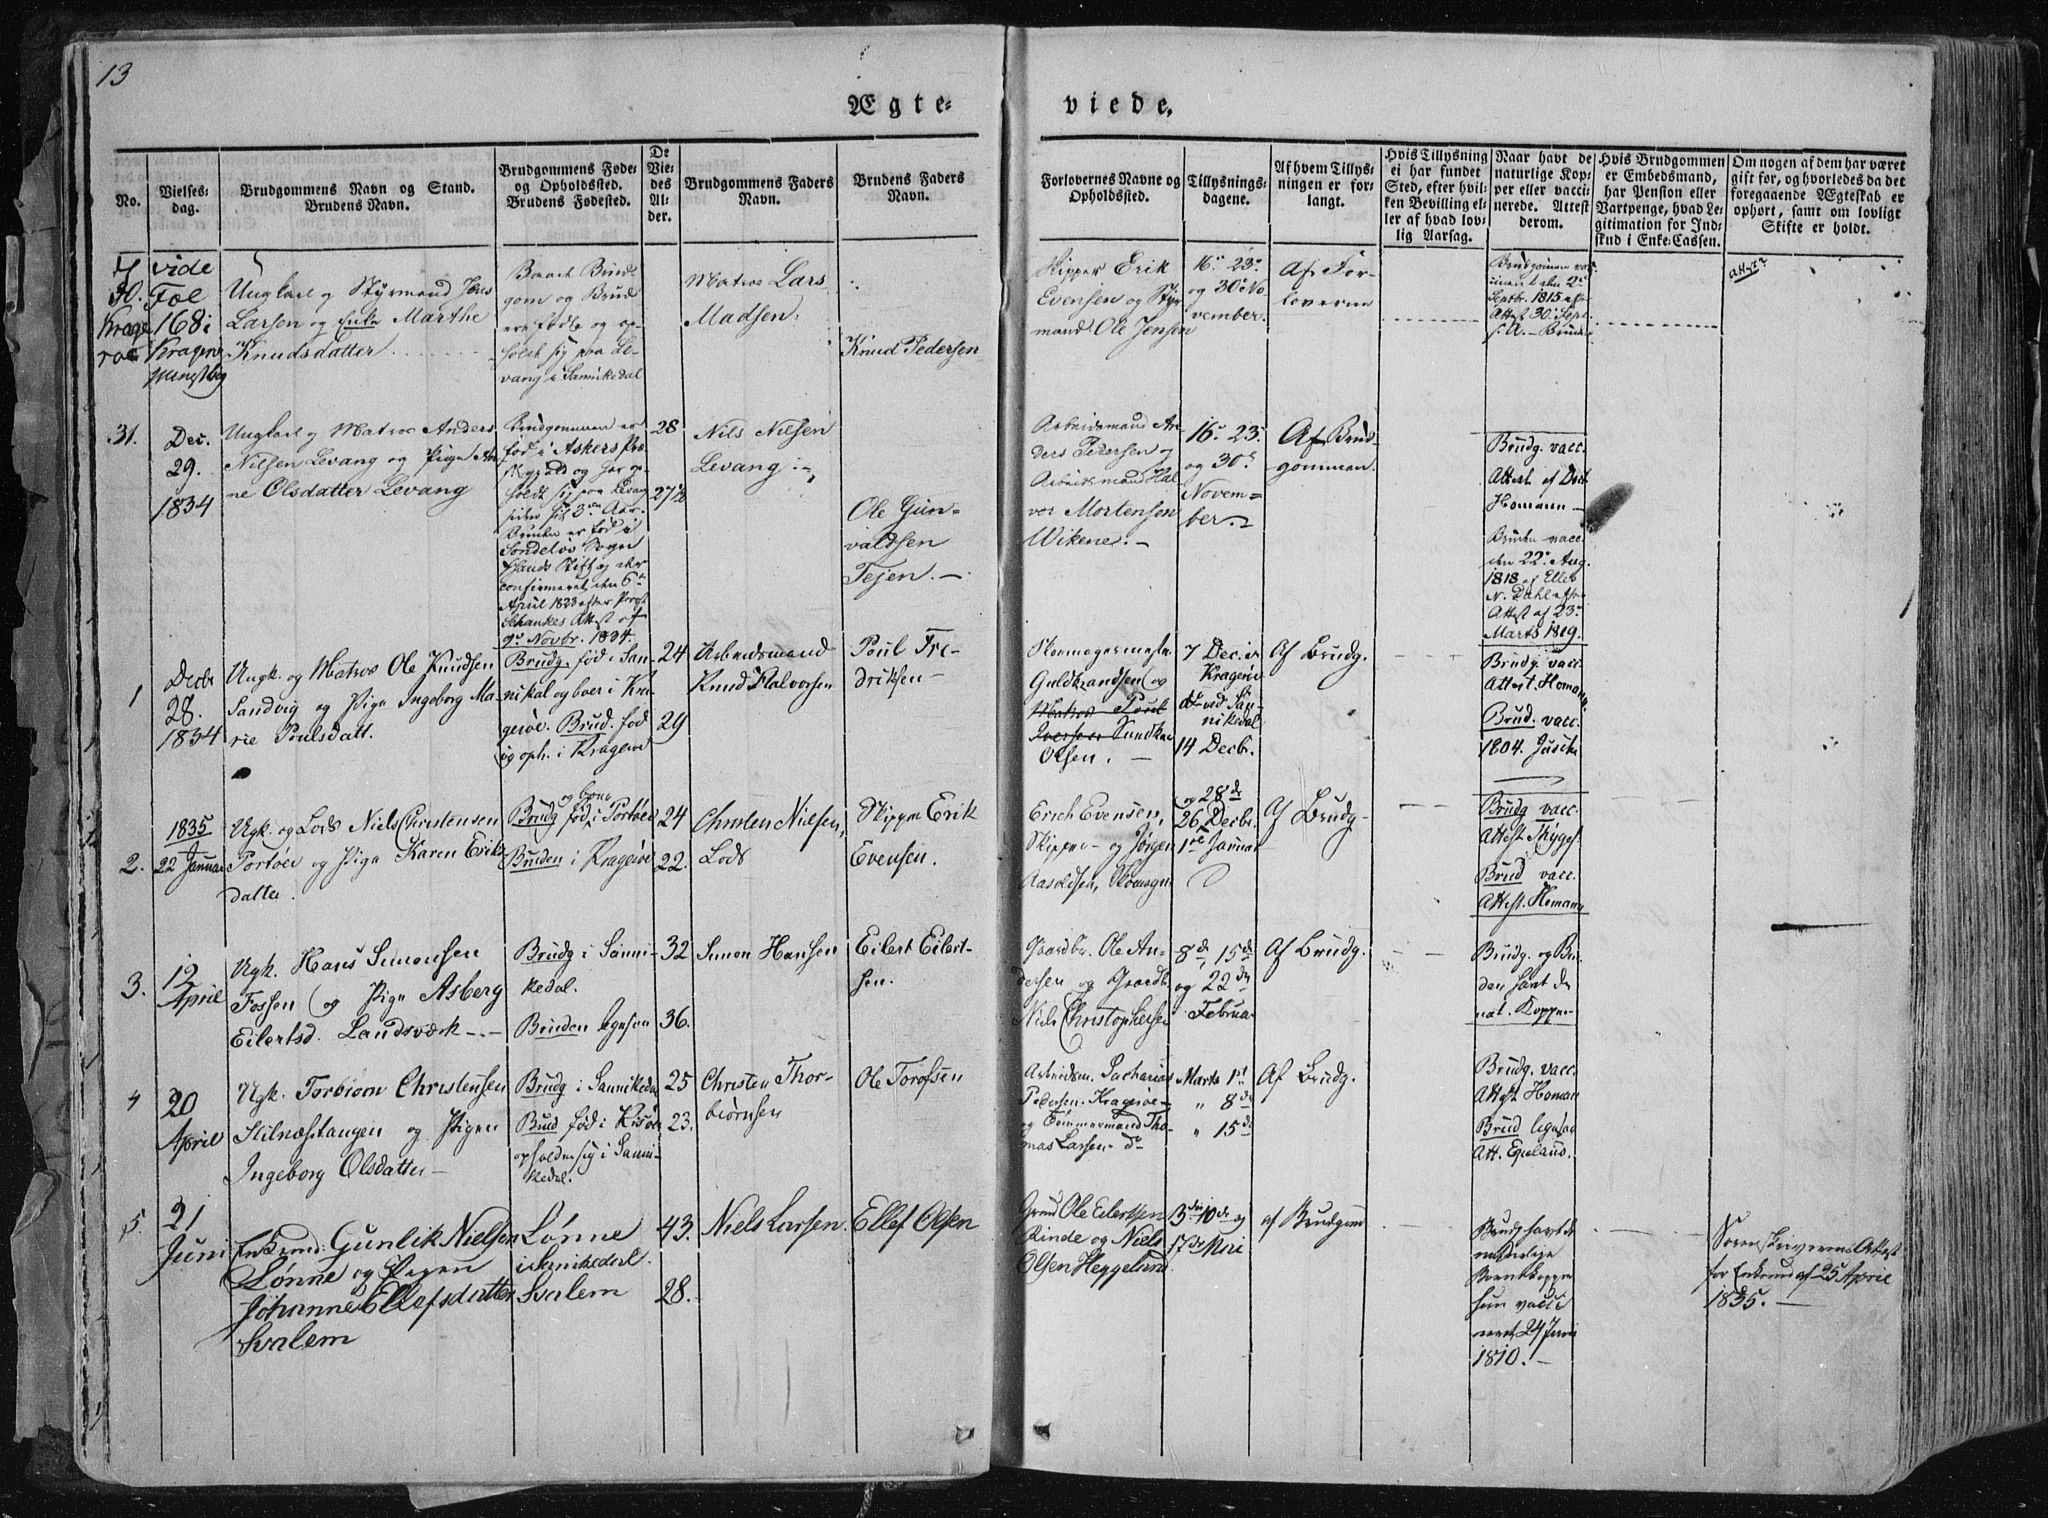 13
Ægte-
viede.
No.
Vielses-
dag.
Brudgommens Navn og Stand.
Brudens Navn.
Brudgommens Føde-
og Opholdssted.
Brudens Fødested.
De
Vie-
des
Al-
der.
Brudgommens Faders
Navn.
Brudens Faders
Navn.
Forlovernes Navne og
Opholdssted.
Tillysnings-
dagene.
Af hvem Tillys-
ningen er for-
langt.
Hvis Tillysning
ei har fundet
Sted, efter hvil-
ken Bevilling el-
ler af hvad lov-
lig Aarsag.
Naar havt de
naturlige Kop-
per eller vacci-
nerede. Attest
derom.
Hvis Brudgommen
er Embedsmand,
har Pension eller
Vartpenge, hvad Le-
gitimation for Ind-
skud i Enke-Cassen.
Om nogen af dem har været
gift før, og hvorledes da det
foregaaende Ægteskab er
ophørt, samt om lovligt
Skifte er holdt.
30.
vide
Fol
168 i
Ungkarl og Styrmand Jens
Larsen og Enke Marthe
Knudsdatter
Baade Brud-
gom og Brud
ere fødte og op-
holdt sig paa Le-
vang i Sannikedal
Matros Lars
Madsen.
Knud Pedersen
Skipper Erik
Evensen og Styr
mand Ole Jensen
16. 23.
og 30. No
vember.
Af For-
loverne
Septbr. 1815
Attest 30. Sept.
31.
Dec.
29.
1834
Ungkarl og Matros Anders
Nilsen Levang og Pige An-
ne Olsdatter Levang
Brudgommen er
fød i Askers Præ-
confirmeret den 6te
April 1823 efter Provst
Schankes Attest af
9. Novbr. 1834.
28
27½
Nils Nilsen
Levang
Ole Gun-
valdsen
Tejen. -
Arbeidsmand An-
ders Pedersen og
Arbeidsmand Hal-
vor Mortensen
Wikene. -
16. 23.
og 30.
Novem-
ber.
Af Brud-
gommen.
Brudg. vacc.
Attest af Doct.
Homann -
Bruden vacc.
den 22. Aug.
1818 af Ellef
N. Dahl efter
Attest af 23.
Marts 1819.
1
Decbr
28.
1834
Ungk. og Matros Ole Knudsen
Sandvig og Pige Ingeborg Ma-
rie Poulsdatt.
Brudg. fød i San-
nikal og boer i Kra-
gerøe. Brud. fød
og oph. i Kragerøe
24
29
Arbeidsmand
Knud Halvorsen
Poul Fre-
driksen -
Skomagermester
Guldbrandsen og
Matros Poul
Iversen
Olsen. -
7 Dec. i
Kragerøe
ved San-
nikedal
14 Decbr.
Af Brudg.
Brudg. vacc.
Attest. Homan
Brud. vacc.
1804.
2.
1835
22 Januar
Ugk. og Lods Niels Christensen
Portøer og Pige Karen Eriks-
datter.
og boer
Brudg fød i Portøer
Bruden i Kragerøe
24
22.
Christen Nielsen,
Lods
Skipper Erik
Evensen.
Erich Evensen,
Skipper - og Jørgen
og 28de
26 Decbr.
1ste Januar
Af Brudg-
Brudg vacc.
Attest Thygesen
Brud vacc.
Attest. Homann
3.
12
April
Ugk. Hans Simonsen
Fossen og Pige Asberg
Eilertsd. Landsværk - -
Brudg i Sanni-
kedal.
Bruden ligesaa
32
36.
Simon Hansen
Eilert Eilert-
sen.
Gaardbr. Ole An-
dersen og Gaardb.
Niels Christophersen
8de, 15de
og 22de
Februar
Af Brudg.
Brudg. og Bru-
den havt de
nat. Kopper
4
20
April
Ugk. Torbiørn Christensen
Stilnæstangen og Pigen
Ingeborg Olsdatter
Brudg i Sannikedal
Brud fød i Risøer
opholder sig i Sanni-
kedal.
25
23.
Christen Thor-
biørnsen
Ole Torofsen
Arbeidsm. Zacharias
Pedersen. Kragerøe -
og Tømmermand Tho-
mas Larsen do
Marts 1st
" 8de
" 15de
Af Brudg.
Brudg. vacc.
Attest Homan
Brud ligesaa
5.
21
Juni
Enkemd: Gunlik Nielsen
Lønne og Pigen
Johanne Ellefsdatter
Svalem
Lønne
i Sannikedal
Svalem
43.
28.
Niels Larsen.
Ellef Olsen
Grmd Ole Eilertsen
Rinde og Niels
Olsen Heggeland
3die 10de og
17de Mai
af Brudgom
Brudg havt de
naturlige
Børnekopper
hun vacci-
neret 24 Juni
1810. -
Sorenskriverens Attest
for Enkemd af 25 April
1835. -